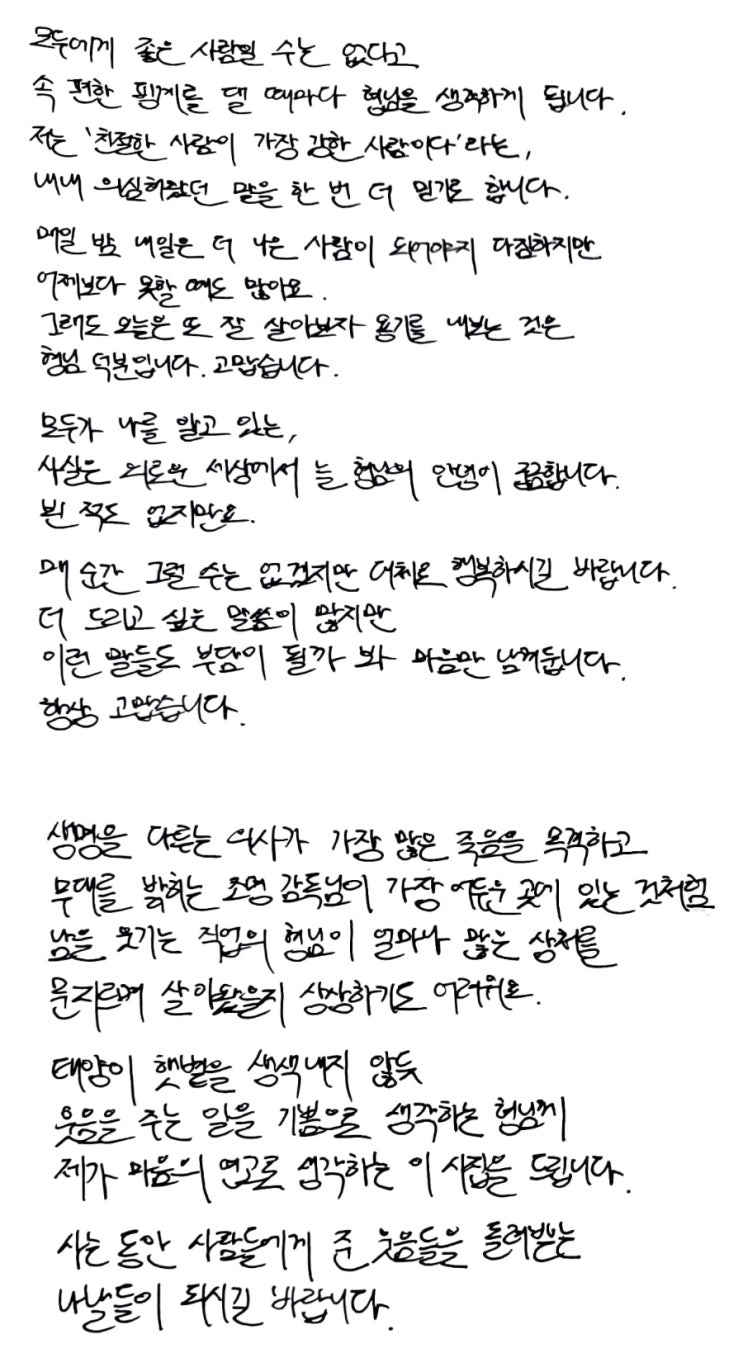 모두에게 좋은 사람일 수는 없다고
속 편한 핑계를 댈 때마다 형님을 생각하게 됩니다.
저는 '친절한 사람이 가장 강한 사람이다'라는,
내내 의심하랐던 말을 한 번 더 믿기로 합니다.
매일 밤 내일은 더 나은 사람이 되어야지 다짐하지만
어제보다 못할 때도 많아요.
그래도 오늘은 또 잘 살아보자 용기를 내보는 것은
형님 덕분입니다. 고맙습니다.
모두가 나를 알고 있는,
사실은 외로운 세상에서 늘 형님의 안녕이 궁금합니다.
뵌 적도 없지만요.
매 순간 그럴 수는 없겠지만 대체로 행복하시길 바랍니다.
더 드리고 싶은 말씀이 많지만
이런 말들도 부담이 될까 봐 마음만 남겨둡니다.
항상 고맙습니다.
생명을 다루는 의사가 가장 많은 죽음을 목격하고
무대를 밝히는 조명 감독님이 가장 어두운 곳에 있는 것처럼
남을 웃기는 직업의 형님이 얼마나 많은 상처를
문지르며 살아왔을지 상상하기도 어려워요.
태양이 햇볕을 생색내지 않듯
웃음을 주는 일을 기쁨으로 생각하는 형님께
제가 마음의 연고로 생각하는 이 시집을 드립니다.
사는 동안 사람들에게 준 웃음들을 돌려받는
나날들이 되시길 바랍니다.